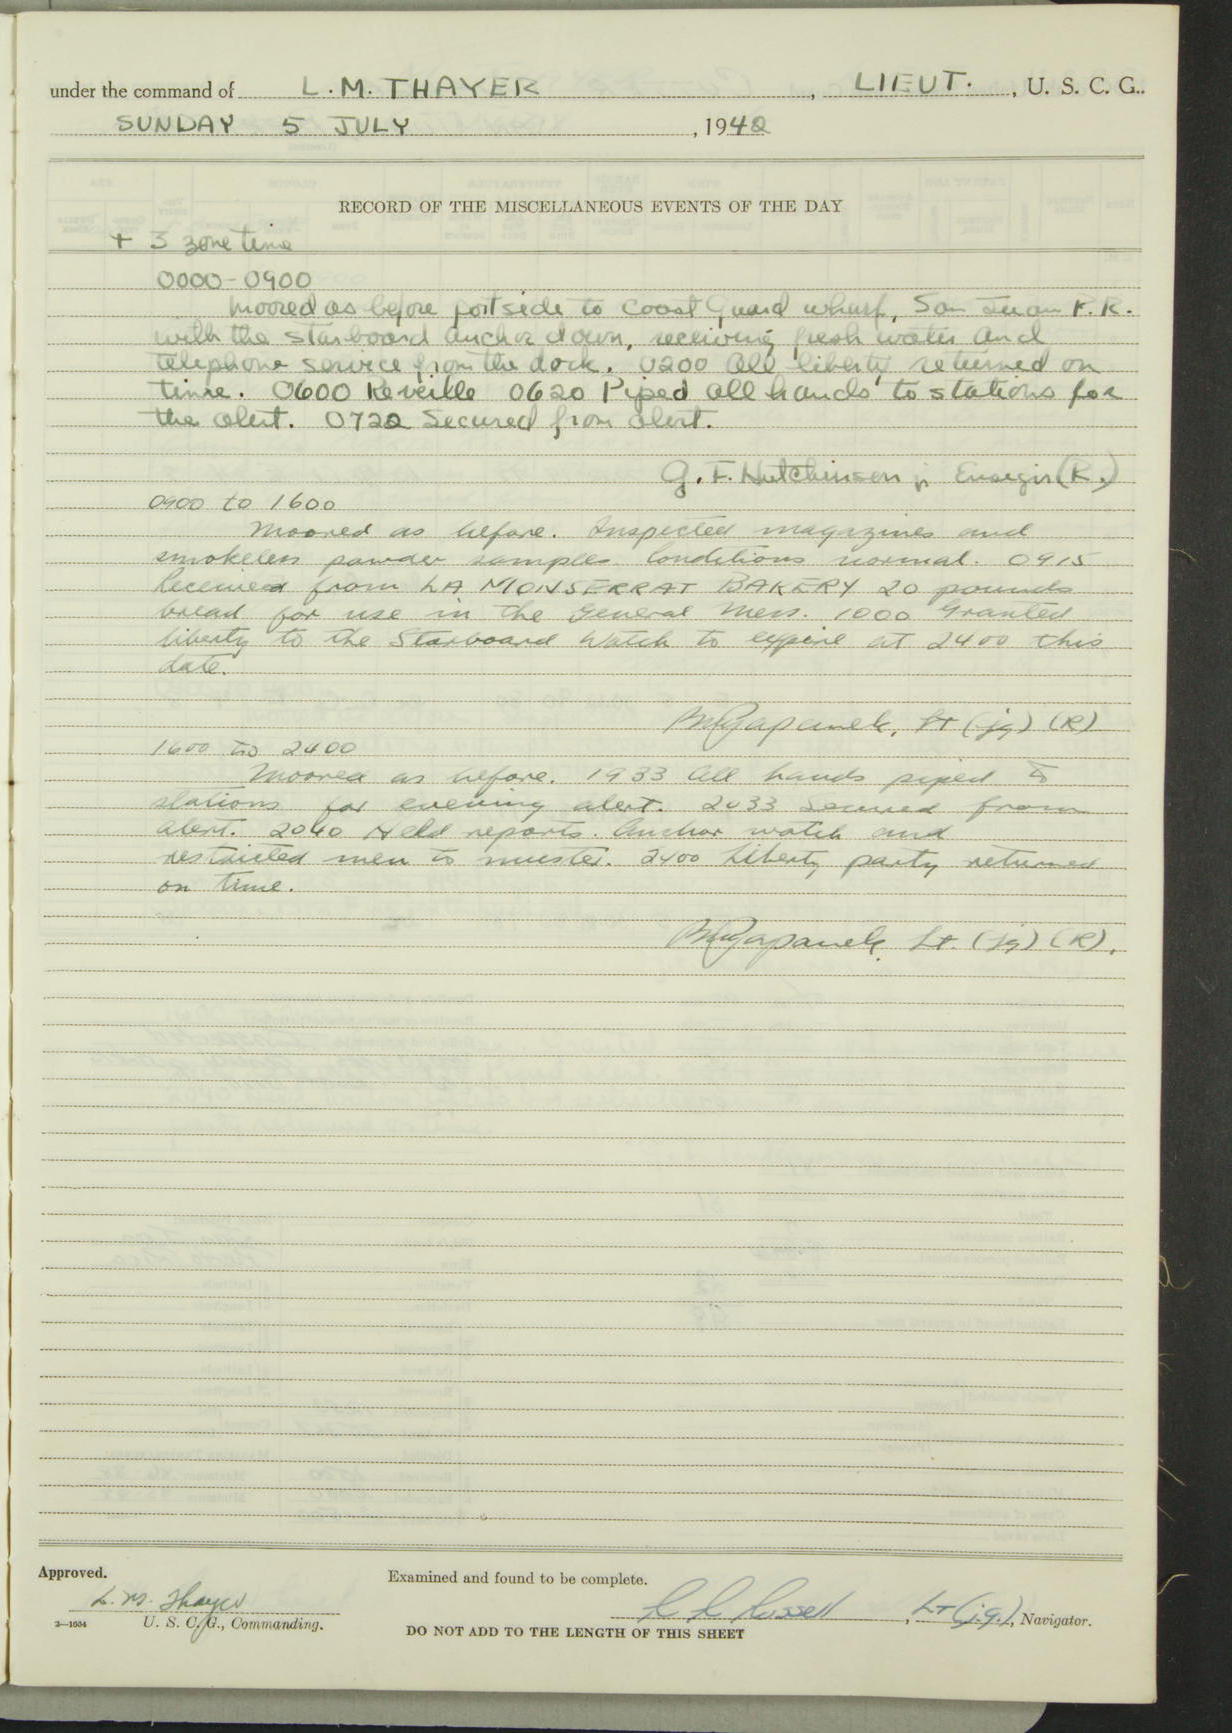 under the command of L. M. THAYER, LIEUT., U. S. C. G..
SUNDAY 5 JULY, 1942
RECORD OF THE MISCELLANEOUS EVENTS OF THE DAY
+ 3 zone time
0000-0900
Moored as before portside to Coast Guard wharf, San Juan P.R.
with the starboard anchor down, receiving fresh water and
telephone service from the dock. 0200 All liberty returned on
time. 0600 Reveille 0620 Piped all hands to stations for
the alert. 0722 Secured from alert.
G. F. Hutchinson jr Ensign (R.)
0900 to 1600
Moored as before. Inspected magazines and
smokeless powder samples. Conditions normal. 0915
Received from LA MONSERRAT BAKERY 20 pounds
bread for use in the General Mess. 1000 Granted
liberty to the Starboard Watch to expire at 2400 this
date.
Lt (jg) (R)
1600 to 2400
Moored as before. 1933 All hands piped to
stations for evening alert. 2033 Secured from
alert. 2040 Held reports. Anchor watch and
restricted men to muster. 2400 Liberty party returned
on time.
Lt. (jg) (R).
Approved.
Examined and found to be complete.
L. M. Thayer
Russell, Lt (j.g.), Navigator.
2—1634 U. S. C. G., Commanding.
DO NOT ADD TO THE LENGTH OF THIS SHEET